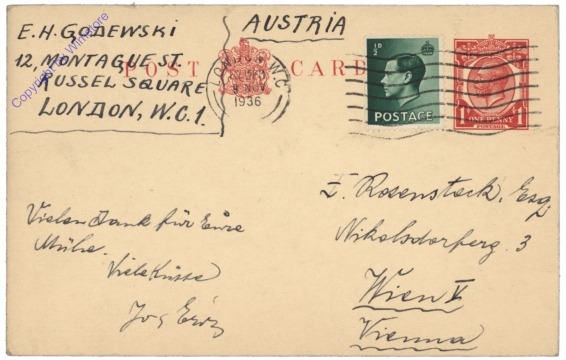 E.H. GODEWSKI
12, MONTAGUE ST.
RUSSEL SQUARE
LONDON, W.C.1.
AUSTRIA
POST CARD
LONDON. W.C.
8 NOV
1936
½D
POSTAGE
ONE PENNY
Copyright by Windore
Vielen Dank für Eure
Mühe.
Viele Küsse
I. Rosenstock, Esq.
Nikolsdorferg. 3
Wien V
Vienna